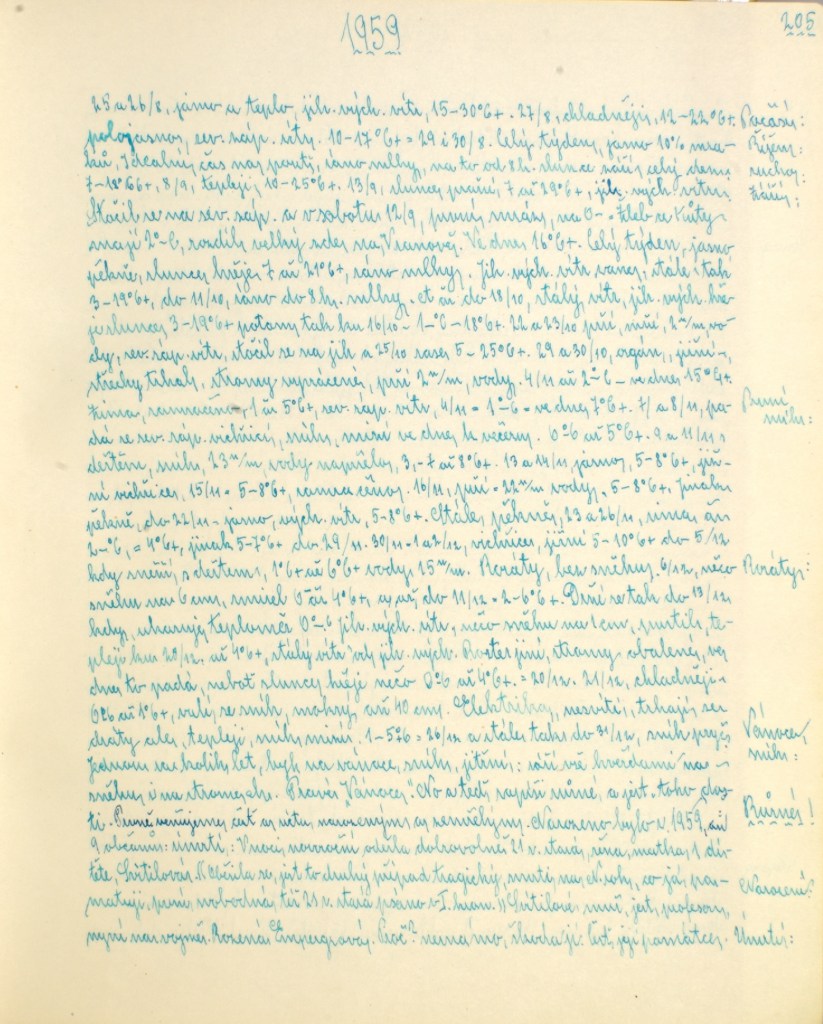 1959
205
25 a 26/8, jasno a teplo, jih. vých. vítr, 15-30°C+. 27/8, chladněji, 12-22°C+. Počasí:
polojasno, sev. záp. větry. 10-17°C+ = 29 i 30/8. Celý týden, jasno 10% mra- Říjen:
ků, Ideální čas na pouti, ráno mlhy, na to od 8 h. slunce září celý den. suchý:
7-18°C+, 8/9, tepleji, 10-25°C+. 13/9, slunce praží, 7 až 29°C+, jih. vých. vítr. Září:
Stočil se na sev. záp. a v sobotu 12/9, první mrázy, na 0- Chleb se Kúty
mají 2°-C, rozdíl velký zdes na Vranově. Ve dne 16°C+. Celý týden, jasno
pěkně, slunce hřeje 7 až 21°C+, ráno mlhy. Jih. vých. vítr vane, stále tak
3-19°C+, do 11/10, ráno do 8 h. mlhy. et až do 18/10, stálý vítr, jih. vých. hře-
je slunce 3-19°C+ potom tak ku 16/10 - 1-°C-18°C+. 22 a 23/10 prší, mží, 2 m/m vo-
dy, sev. záp. vítr, stočil se na jih a 25/10 zase 5-25°C+. 29 a 30/10, orgán, jižní,
střechy trhal, stromy vyvrácené, prší 2 m/m, vody. 4/11 až 2°-C - ve dne 15°C+.
Zima, zamračeno, 1 až 5°C+, sev. záp. vítr, 4/11 = 1°-C = ve dne 7°C+. 7/ a 8/11, pa- První
dá se sev. záp. vichřicí, sníh, mizí ve dne k večeru. 0°C až 5°C+. 9 a 11/11 s sníh:
deštěm, sníh, 23 m/m vody napršelo, 3, -7 až 8°C+. 13 a 14/11 jasno, 5-8°C+, již-
ní vichřice, 15/11 = 5-8°C+, zamračeno. 16/11, prší = 22 m/m vody, 5-8°C+. Jinak
pěkně, do 22/11 - jasno, vých. vítr, 5-8°C+. Stále, pěkně, 23 a 26/11, mraz až
2-°C, = 4°C+, jinak 5-7°C+ do 29/11. 30/11 = 1 a 2/12, vichřice, jižní 5-10°C+ do 5/12
kdy sněží, s deštem, 1°C+ až 6°C+ vody, 15 m/m. Roráty, bez sněhu. 6/12, něco Roráty:
sněhu na 6 cm, mizel 0° až 4°C+, a až do 11/12 = 2-6°C+. Drží se tak do 13/12,
kdy, ukazuje teploměr 0°-C jih. vých. vítr, něco sněhu na 1 cm, pustilo, te-
pleji ku 20/12. až 4°C+, stálý vítr od jih. vých. Roste jiní, stromy obalené, ve
dne to padá, neboť slunce hřeje něco 0°C až 4°C+. = 20/12. 21/12, chladněji -
0°C až 1°C+, valí se sníh, mokrý, až 40 cm. Elektrika, nesvítí, trhají se
dráty ale, tepleji, sníh mizí, 1-5°C = 26/12 a stále tak do 31/12, sníh pryč Vánoce,
Jednou za kolik let, byl na vánoce, sníh, jitřní: září vše hvězdami na - sníh:
sněhu i na stromech. Pravé „Vánoce“. No a teď napíši různé, a jest toho dos- Různé!
ti. Prvně věnujeme čat a úctu narozeným a zemřelým. Narozeno bylo r. 1959, až
9 občánům: úmrtí: V noci odešla dobrovolně 21 r. stará, žena, matka, 1 dí-
těte, Svitilová. jest to druhý případ tragický, smrti, na N. roky, co já, pa- Narození?
matuji, první, svobodná, též 21 r. stará psáno v I. kron. Svitilové muž, jest, profesor,
nyní na vojně. Rozená Empergrová. Proč? nemámo, škoda jí: čest její památce. Úmrtí: